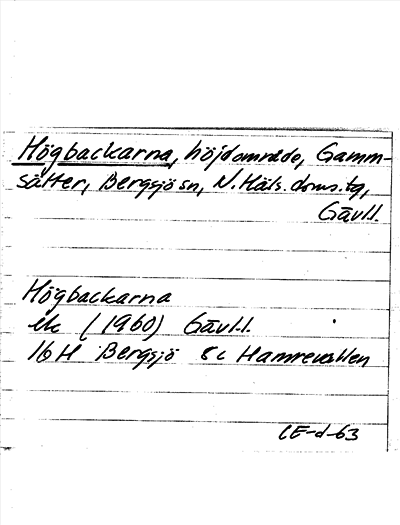 Högbackarna, höjdområde, Gamm-
sätter, Bergsjö sn, N. Häls. doms.tg,
Gävl.l.
Högbackarna
ek (1960) Gävl.l.
16H Bergsjö 8c Hamrevallen
CE-d-63